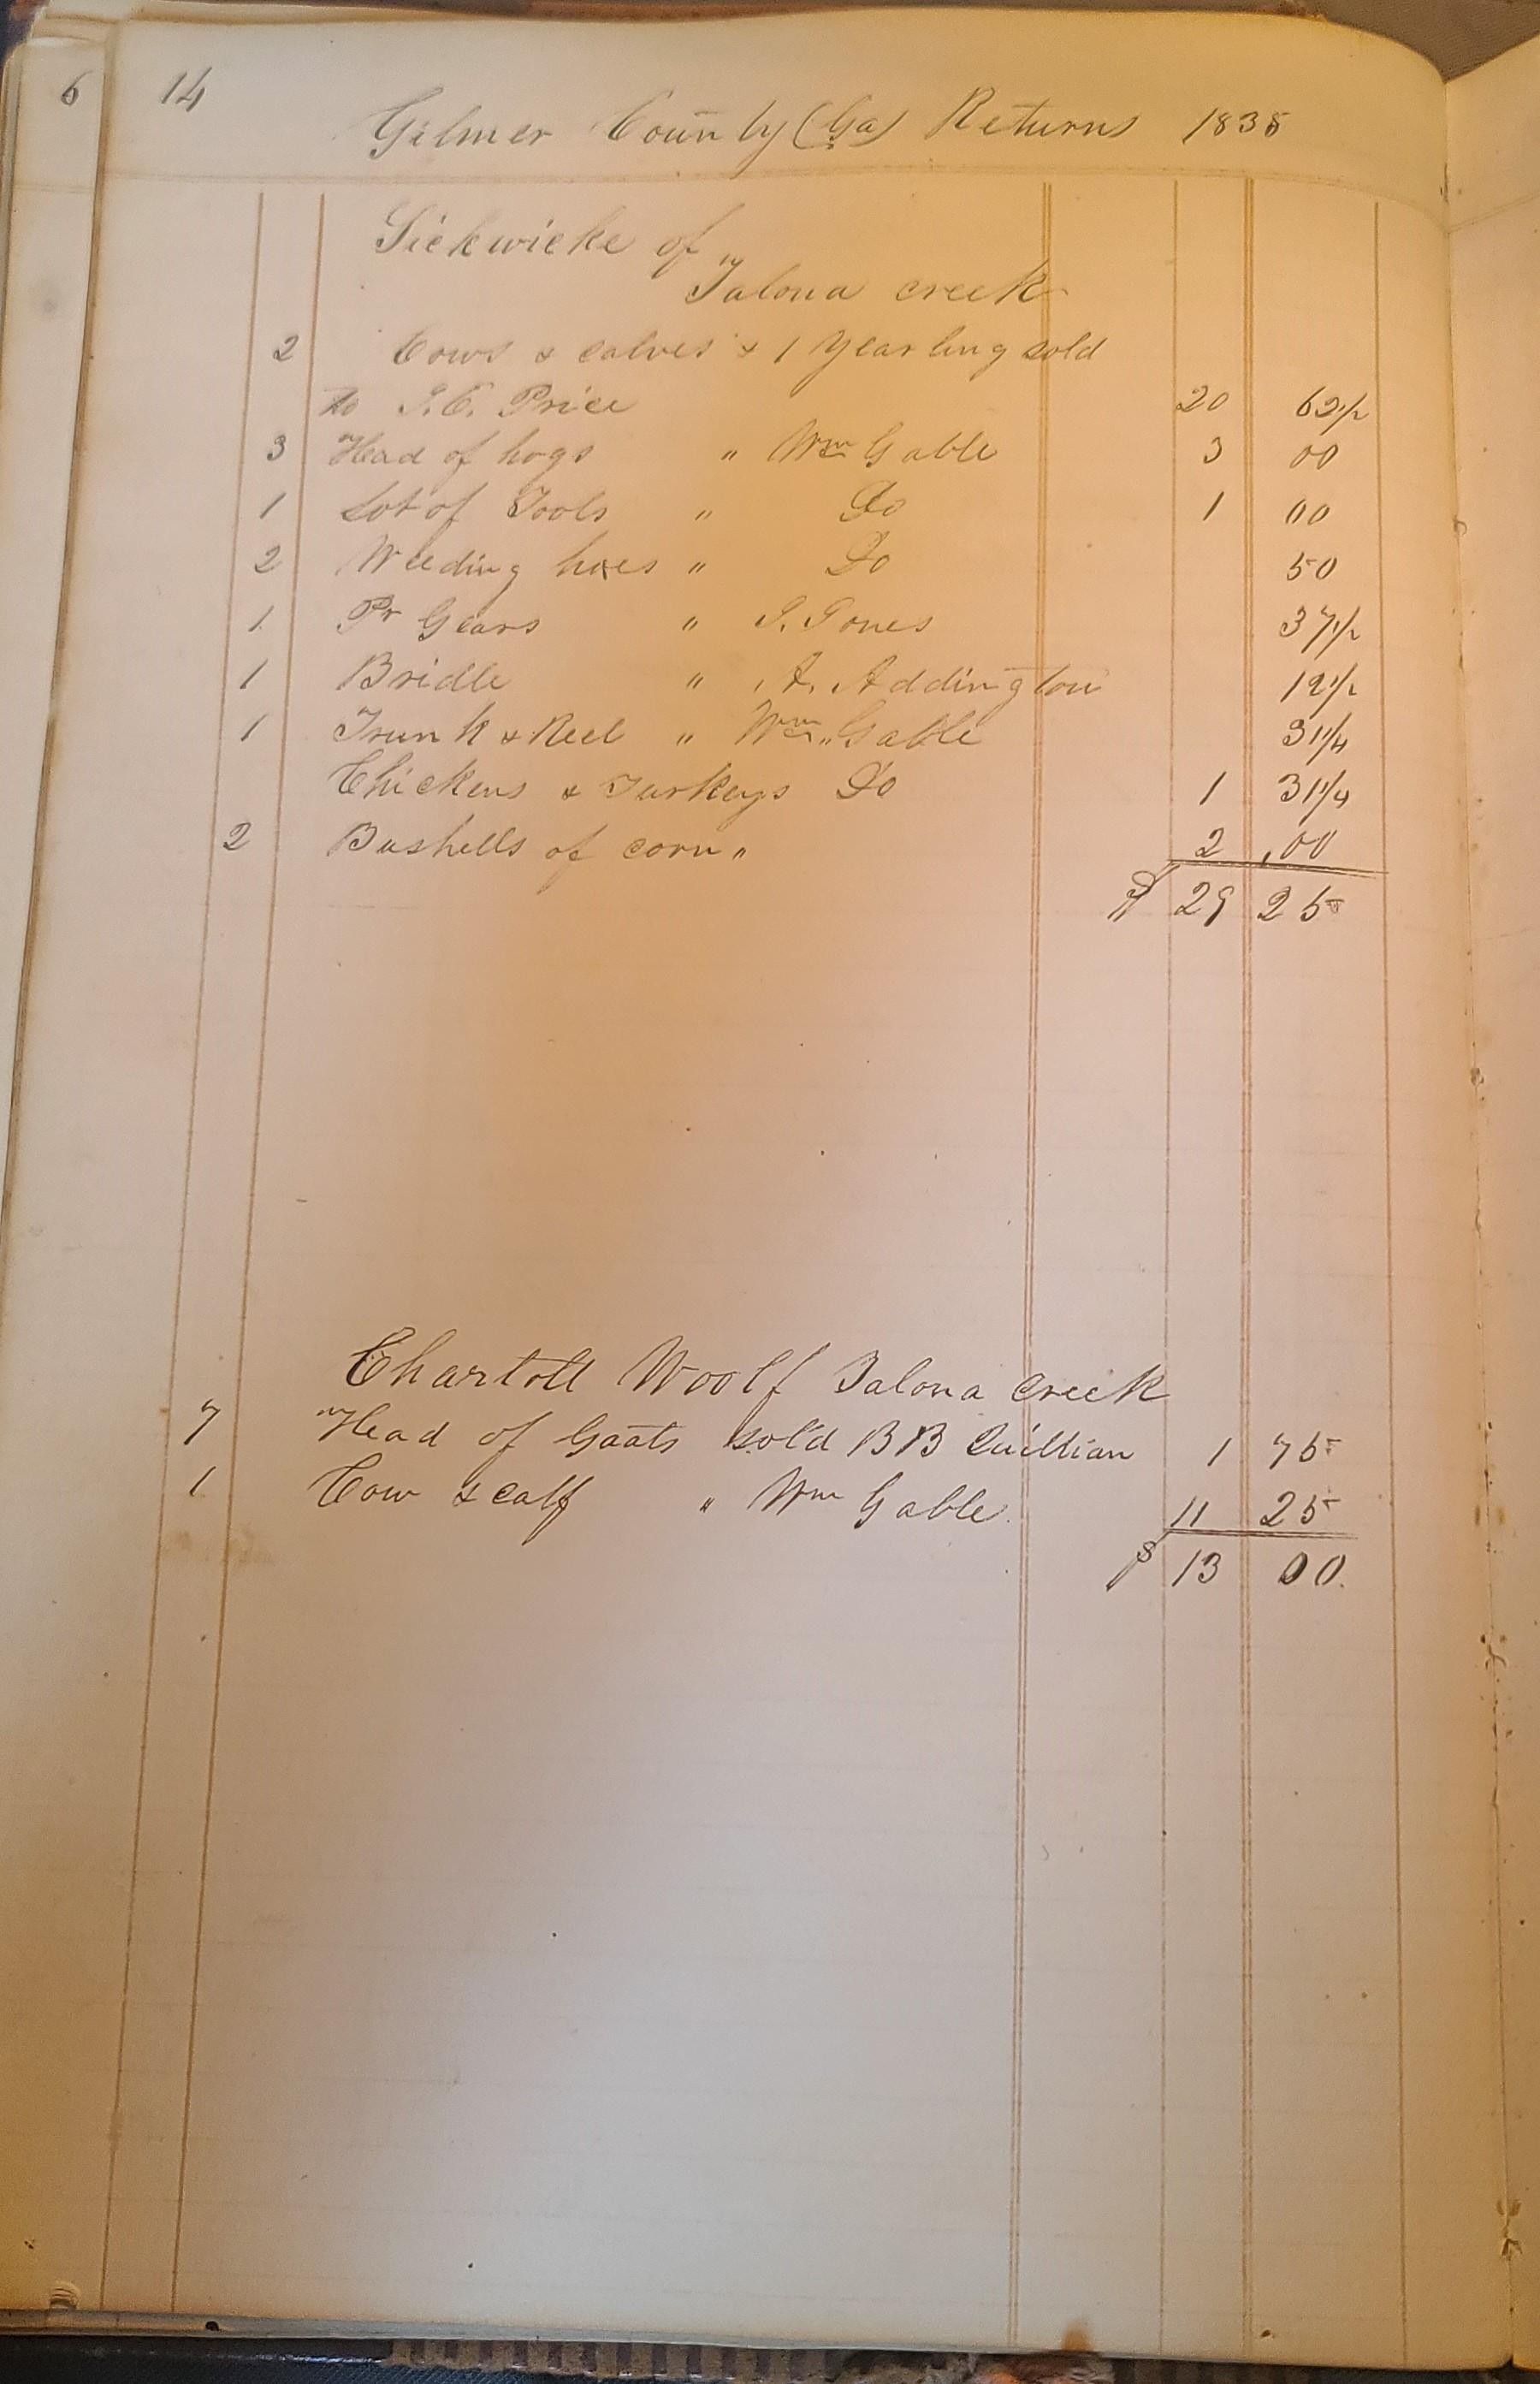 6 14
Gilmer County (Ga) Returns 1838
Sickwicke of
Talona creek
2 Cows & calves & 1 Yearling sold
to J. C. Price 20 62 1/2
3 Head of hogs " Wm Gable 3 00
1 Lot of Tools " Do 1 00
2 Weeding hoes " Do 50
1 Pr Gears " J. Jones 37 1/2
1 Bridle " A. Addington 12 1/2
1 Trunk & Reel " Wm Gable 31 1/4
Chickens & Turkeys Do 1 31 1/4
2 Bushells of corn " 2,00
$ 29 25
Charlott Woolf Talona Creek
7 Head of Goats sold B B Quillian 1 75
1 Cow & calf " Wm Gable. 11 25
$ 13 00.